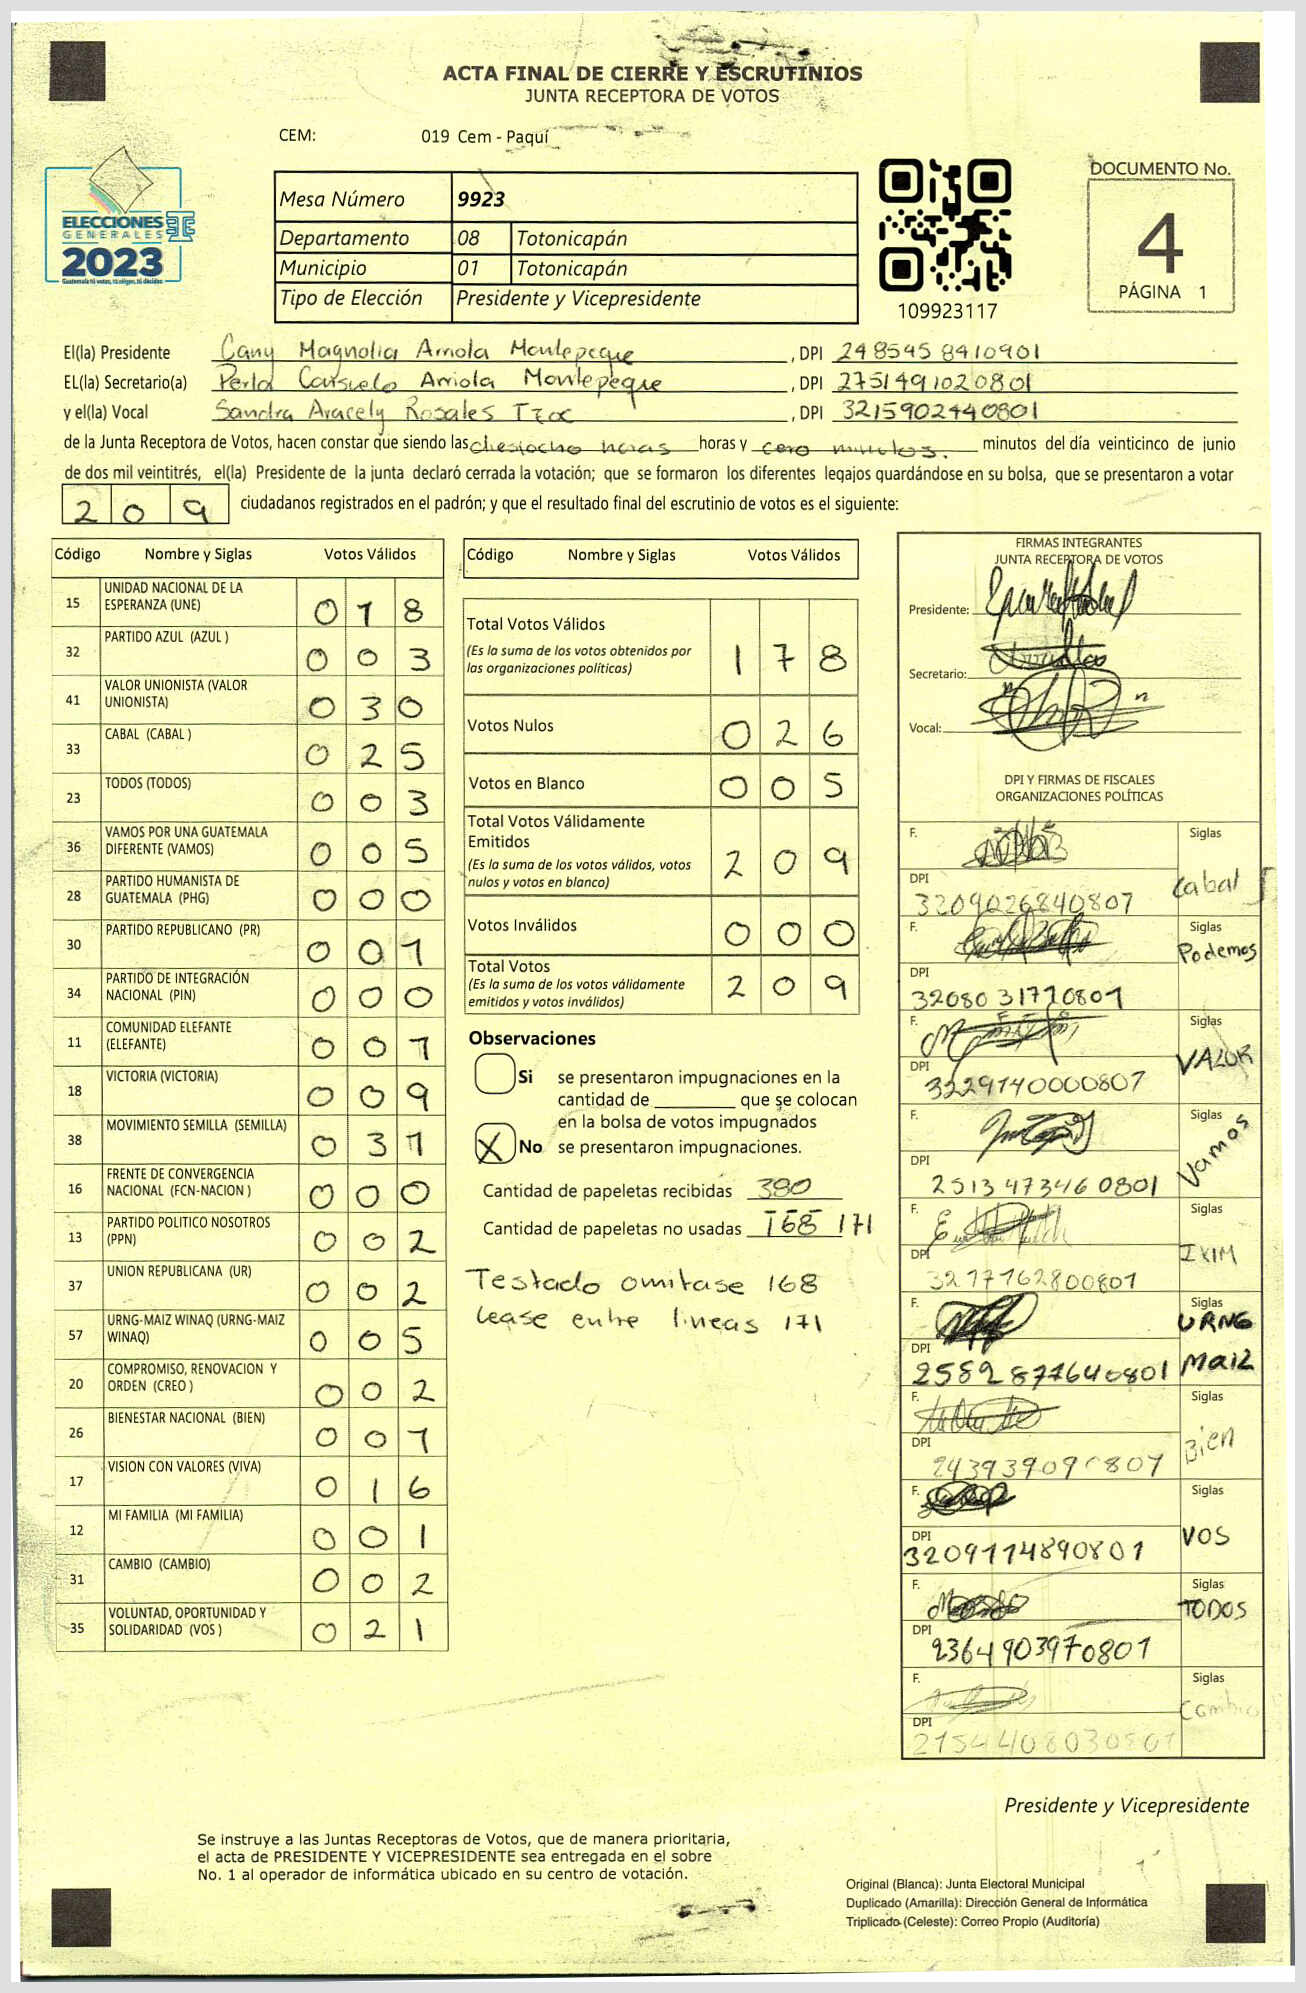 ACTA FINAL DE CIERRE Y ESCRUTINIOS
JUNTA RECEPTORA DE VOTOS
CEM: 019 Cem - Paquí
ELECCIONES
GENERALES
2023
Guatemala tú votas, tú eliges, tú decides
Mesa Número 9923
Departamento 08 Totonicapán
Municipio 01 Totonicapán
Tipo de Elección Presidente y Vicepresidente
109923117
DOCUMENTO No.
4
PÁGINA 1
El(la) Presidente Cany Magnolia Arriola Montepeque , DPI 2485458410901
EL(la) Secretario(a) Perla Consuelo Arriola Montepeque , DPI 2751491020801
y el(la) Vocal Sandra Aracely Rosales Tzoc , DPI 3215902440801
de la Junta Receptora de Votos, hacen constar que siendo las dieciocho horas horas y cero minutos. minutos del día veinticinco de junio
de dos mil veintitrés, el(la) Presidente de la junta declaró cerrada la votación; que se formaron los diferentes legajos guardándose en su bolsa, que se presentaron a votar
209 ciudadanos registrados en el padrón; y que el resultado final del escrutinio de votos es el siguiente:
Código Nombre y Siglas Votos Válidos
15 UNIDAD NACIONAL DE LA ESPERANZA (UNE) 018
32 PARTIDO AZUL (AZUL ) 003
41 VALOR UNIONISTA (VALOR UNIONISTA) 030
33 CABAL (CABAL ) 025
23 TODOS (TODOS) 003
36 VAMOS POR UNA GUATEMALA DIFERENTE (VAMOS) 005
28 PARTIDO HUMANISTA DE GUATEMALA (PHG) 000
30 PARTIDO REPUBLICANO (PR) 001
34 PARTIDO DE INTEGRACIÓN NACIONAL (PIN) 000
11 COMUNIDAD ELEFANTE (ELEFANTE) 001
18 VICTORIA (VICTORIA) 009
38 MOVIMIENTO SEMILLA (SEMILLA) 031
16 FRENTE DE CONVERGENCIA NACIONAL (FCN-NACION ) 000
13 PARTIDO POLITICO NOSOTROS (PPN) 002
37 UNION REPUBLICANA (UR) 002
57 URNG-MAIZ WINAQ (URNG-MAIZ WINAQ) 005
20 COMPROMISO, RENOVACION Y ORDEN (CREO ) 002
26 BIENESTAR NACIONAL (BIEN) 001
17 VISION CON VALORES (VIVA) 016
12 MI FAMILIA (MI FAMILIA) 001
31 CAMBIO (CAMBIO) 002
35 VOLUNTAD, OPORTUNIDAD Y SOLIDARIDAD (VOS ) 021
Código Nombre y Siglas Votos Válidos
Total Votos Válidos 178
(Es la suma de los votos obtenidos por
las organizaciones políticas)
Votos Nulos 026
Votos en Blanco 005
Total Votos Válidamente
Emitidos 209
(Es la suma de los votos válidos, votos
nulos y votos en blanco)
Votos Inválidos 000
Total Votos 209
(Es la suma de los votos válidamente
emitidos y votos inválidos)
Observaciones
Si se presentaron impugnaciones en la
cantidad de ________ que se colocan
en la bolsa de votos impugnados
X No se presentaron impugnaciones.
Cantidad de papeletas recibidas 380
Cantidad de papeletas no usadas 168 171
Testado omitase 168
Lease entre lineas 171
FIRMAS INTEGRANTES
JUNTA RECEPTORA DE VOTOS
Presidente:
Secretario:
Vocal:
DPI Y FIRMAS DE FISCALES
ORGANIZACIONES POLÍTICAS
F. Siglas
Cabal
DPI
3209026840807
F. Siglas
Podemos
DPI
3208031770801
F. Siglas
VALOR
DPI
3229140000807
F. Siglas
Vamos
DPI
2513473460801
F. Siglas
IXIM
DPI
3217762800801
F. Siglas
URNG
MAIZ
DPI
2582877640801
F. Siglas
Bien
DPI
F. Siglas
VOS
DPI
3209114890801
F. Siglas
TODOS
DPI
2364903970801
F. Siglas
Cambio
DPI
2154408030801
Presidente y Vicepresidente
Se instruye a las Juntas Receptoras de Votos, que de manera prioritaria,
el acta de PRESIDENTE Y VICEPRESIDENTE sea entregada en el sobre
No. 1 al operador de informática ubicado en su centro de votación.
Original (Blanca): Junta Electoral Municipal
Duplicado (Amarilla): Dirección General de Informática
Triplicado (Celeste): Correo Propio (Auditoría)